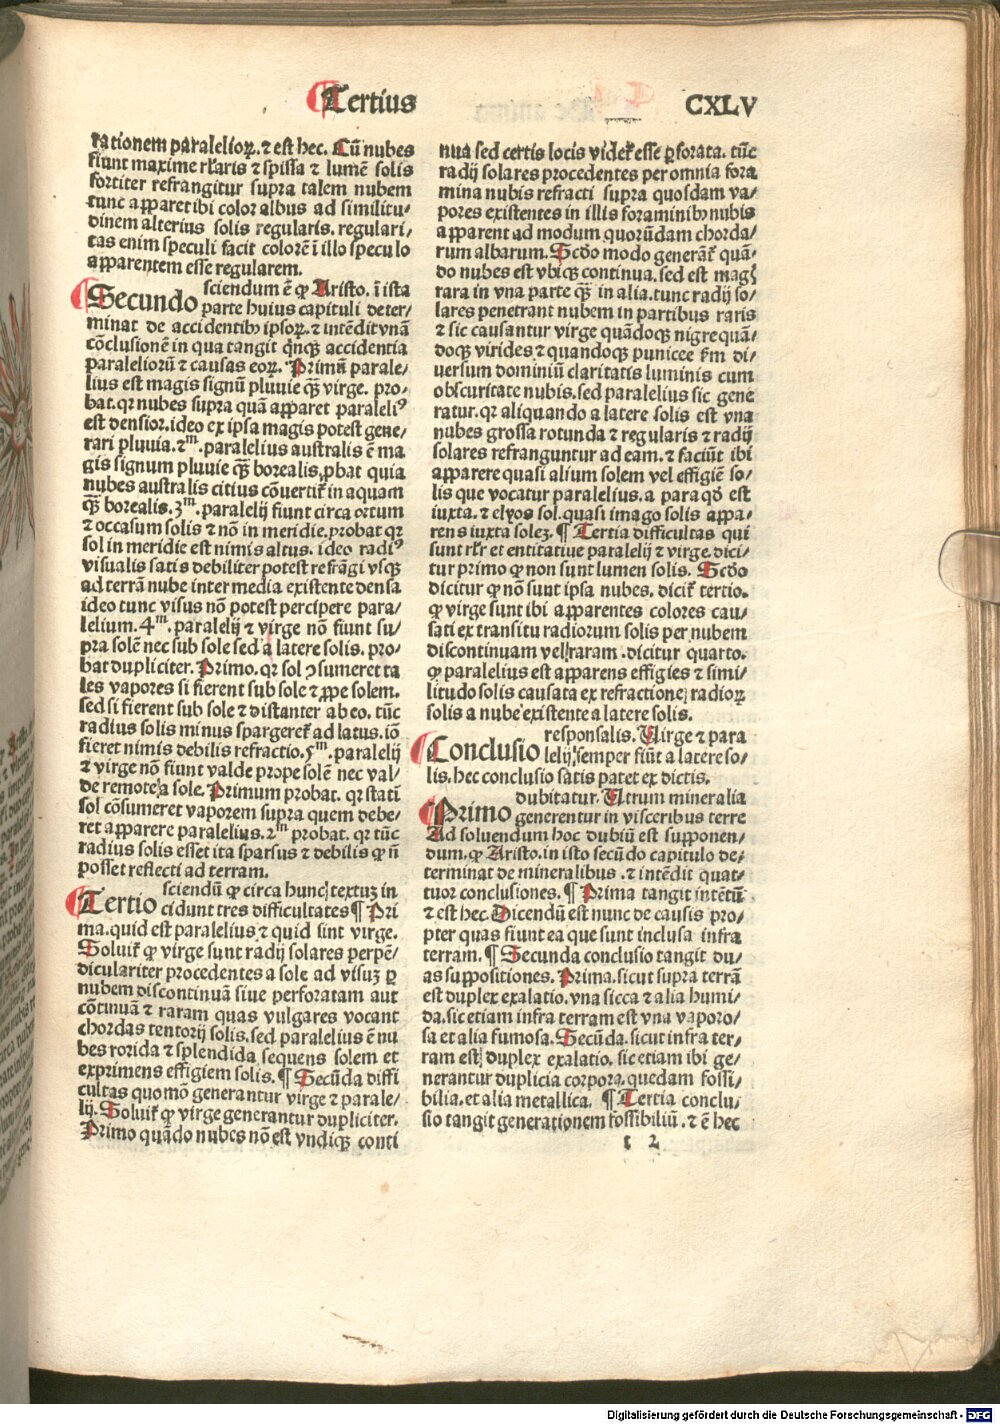 Tertius
CXLV
rationem paralelioꝝ. ⁊ est hec. Cū nubes
fiunt maxime rl'aris ⁊ spissa ⁊ lumē solis
fortiter refrangitur supra talem nubem
tunc apparet ibi color albus ad similitu⸗
dinem alterius solis regularis. regulari⸗
tas enim speculi facit colorē ī illo speculo
apparentem esse regularem.
Secundo sciendum ē ꝙ Aristo. ī ista
parte huius capituli deter⸗
minat de accidentibꝰ ipsoꝝ. ⁊ intēdit vnā
cōclusionē in qua tangit qͥnqꝫ accidentia
paralelioꝝ ⁊ causas eoꝝ. Primū parale⸗
lius est magis signū pluuie qꝫ virge. pro⸗
bat. qꝛ nubes supra quā apparet paraleliꝰ
est densior. ideo ex ipsa magis potest gene⸗
rari pluuia. 2ᵐ. paralelius australis ē ma
gis signum pluuie qꝫ borealis. ꝓbat quia
nubes australis citius cōuertiť in aquam
qꝫ borealis. 3ᵐ. paralelij fiunt circa ortum
⁊ occasum solis ⁊ nō in meridie. probat qꝛ
sol in meridie est nimis altus. ideo radiꝰ
visualis satis debiliter potest refrāgi vsqꝫ
ad terrā nube inter media existente densa
ideo tunc visus nō potest percipere para⸗
lelium. 4ᵐ. paralelij ⁊ virge nō fiunt su⸗
pra solē nec sub sole sed a latere solis. pro⸗
bat dupliciter. Primo. qꝛ sol ꝯsumeret ta
les vapores si fierent sub sole ⁊ ꝓpe solem.
sed si fierent sub sole ⁊ distanter ab eo. tūc
radius solis minus spargereť ad latus. iō
fieret nimis debilis refractio. 5ᵐ. paralelij
⁊ virge nō fiunt valde prope solē nec val⸗
de remote a sole. Primum probat. qꝛ statī
sol cōsumeret vaporem supra quem debe⸗
ret apparere paralelius. 2ᵐ probat. qꝛ tūc
radius solis esset ita sparsus ⁊ debilis ꝙ ñ
posset reflecti ad terram.
Tertio sciendū ꝙ circa hunc textuꝫ in
cidunt tres difficultates ¶ Pri
ma. quid est paralelius ⁊ quid sint virge.
Soluiť ꝙ virge sunt radij solares perpē⸗
diculariter procedentes a sole ad visuꝫ ꝑ
nubem discontinuā siue perforatam aut
cōtinuā ⁊ raram quas vulgares vocant
chordas tentorij solis. sed paralelius ē nu
bes rorida ⁊ splendida sequens solem et
exprimens effigiem solis. ¶ Secūda diffi
cultas quomō generantur virge ⁊ parale⸗
lij. Soluiť ꝙ virge generantur dupliciter.
Primo quādo nubes nō est vndiqꝫ conti
nua sed certis locis videť esse ꝑforata. tūc
radij solares procedentes per omnia fora
mina nubis refracti supra quosdam va⸗
pores existentes in illis foraminibꝰ nubis
apparent ad modum quorūdam chorda⸗
rum albarum. Scdo modo generāť quā⸗
do nubes est vbiqꝫ continua. sed est magꝭ
rara in vna parte qꝫ in alia. tunc radij so⸗
lares penetrant nubem in partibus raris
⁊ sic causantur virge quādoqꝫ nigre quā⸗
doqꝫ virides ⁊ quandoqꝫ punicee ẜm di⸗
uersum dominiū claritatis luminis cum
obscuritate nubis. sed paralelius sic gene
ratur. qꝛ aliquando a latere solis est vna
nubes grossa rotunda ⁊ regularis ⁊ radij
solares refranguntur ad eam. ⁊ faciūt ibi
apparere quasi alium solem vel effigiē so⸗
lis que vocatur paralelius. a para qd est
iuxta. ⁊ elyos sol. quasi imago solis appa⸗
rens iuxta solez. ¶ Tertia difficultas qui
sunt rl'r et entitatiue paralelij ⁊ virge. dici⸗
tur primo ꝙ non sunt lumen solis. Scdo
dicitur ꝙ nō sunt ipsa nubes. diciť tertio.
ꝙ virge sunt ibi apparentes colores cau⸗
sati ex transitu radiorum solis per nubem
discontinuam vel raram. dicitur quarto.
ꝙ paralelius est apparens effigies ⁊ simi⸗
litudo solis causata ex refractione radioꝝ
solis a nube existente a latere solis.
Conclusio responsalis. Virge ⁊ para
lelij semper fiūt a latere so⸗
lis. hec conclusio satis patet ex dictis.
Primo dubitatur. Utrum mineralia
generentur in visceribus terre
Ad soluendum hoc dubiū est supponen⸗
dum. ꝙ Aristo. in isto secūdo capitulo de⸗
terminat de mineralibus. ⁊ intēdit quat⸗
tuor conclusiones. ¶ Prima tangit intētū
⁊ est hec. Dicendū est nunc de causis pro⸗
pter quas fiunt ea que sunt inclusa infra
terram. ¶ Secunda conclusio tangit du⸗
as suppositiones. Prima. sicut supra terrā
est duplex exalatio. vna sicca ⁊ alia humi⸗
da. sic etiam infra terram est vna vaporo⸗
sa et alia fumosa. Secūda. sicut infra ter⸗
ram est duplex exalatio. sic etiam ibi ge⸗
nerantur duplicia corpora. quedam fossi⸗
bilia. et alia metallica. ¶ Tertia conclu⸗
sio tangit generationem fossibiliū. ⁊ ē hec
t 2
Digitalisierung gefördert durch die Deutsche Forschungsgemeinschaft - DFG